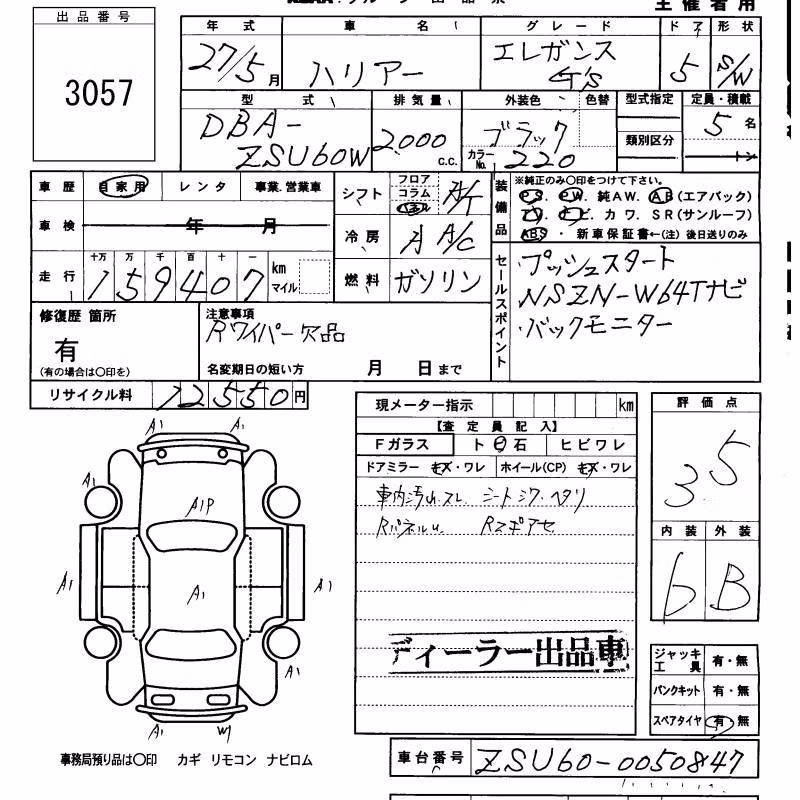 主催者用
出品番号
3057
年式 車名 グレード ドア 形状
27/5月 ハリアー エレガンス G's 5 S/W
型式 排気量 外装色 色替 型式指定 定員・積載
DBA-ZSU60W 2000 c.c. ブラック カラーNo. 220 類別区分 5名 トン
車歴 自家用 レンタ 事業.営業車
車検 年 月
走行 十万 万 千 百 十 一 159407 km マイル
シフト フロア コラム パネル A/T
冷房 A A/C
燃料 ガソリン
装備品 ※純正のみ○印をつけて下さい。
PS. PW. 純AW. AB(エアバック)
TV. ナビ カワ. SR(サンルーフ)
ABS ・ 新車保証書←(注) 後日送りのみ
セールスポイント
プッシュスタート
NSZN-W64Tナビ
バックモニター
修復歴 箇所
有
(有の場合は○印を)
注意事項
Rワイパー欠品
名変期日の短い方 月 日まで
リサイクル料 12550円
現メーター指示 km
【査定員記入】
Fガラス ト石 ヒビワレ
ドアミラー キズ・ワレ ホイール(CP) キズ・ワレ
車内汚れ.スレ. シートシワ・ヘタリ
評価点
3.5
内装 外装
6 B
A1 A1
A1
A1P
A1 A1 A1
A1
A1 W1
ディーラー出品車
ジャッキ工具 有・無
パンクキット 有・無
スペアタイヤ 有 無
車台番号 ZSU60-0050847
事務局預り品は○印 カギ リモコン ナビロム